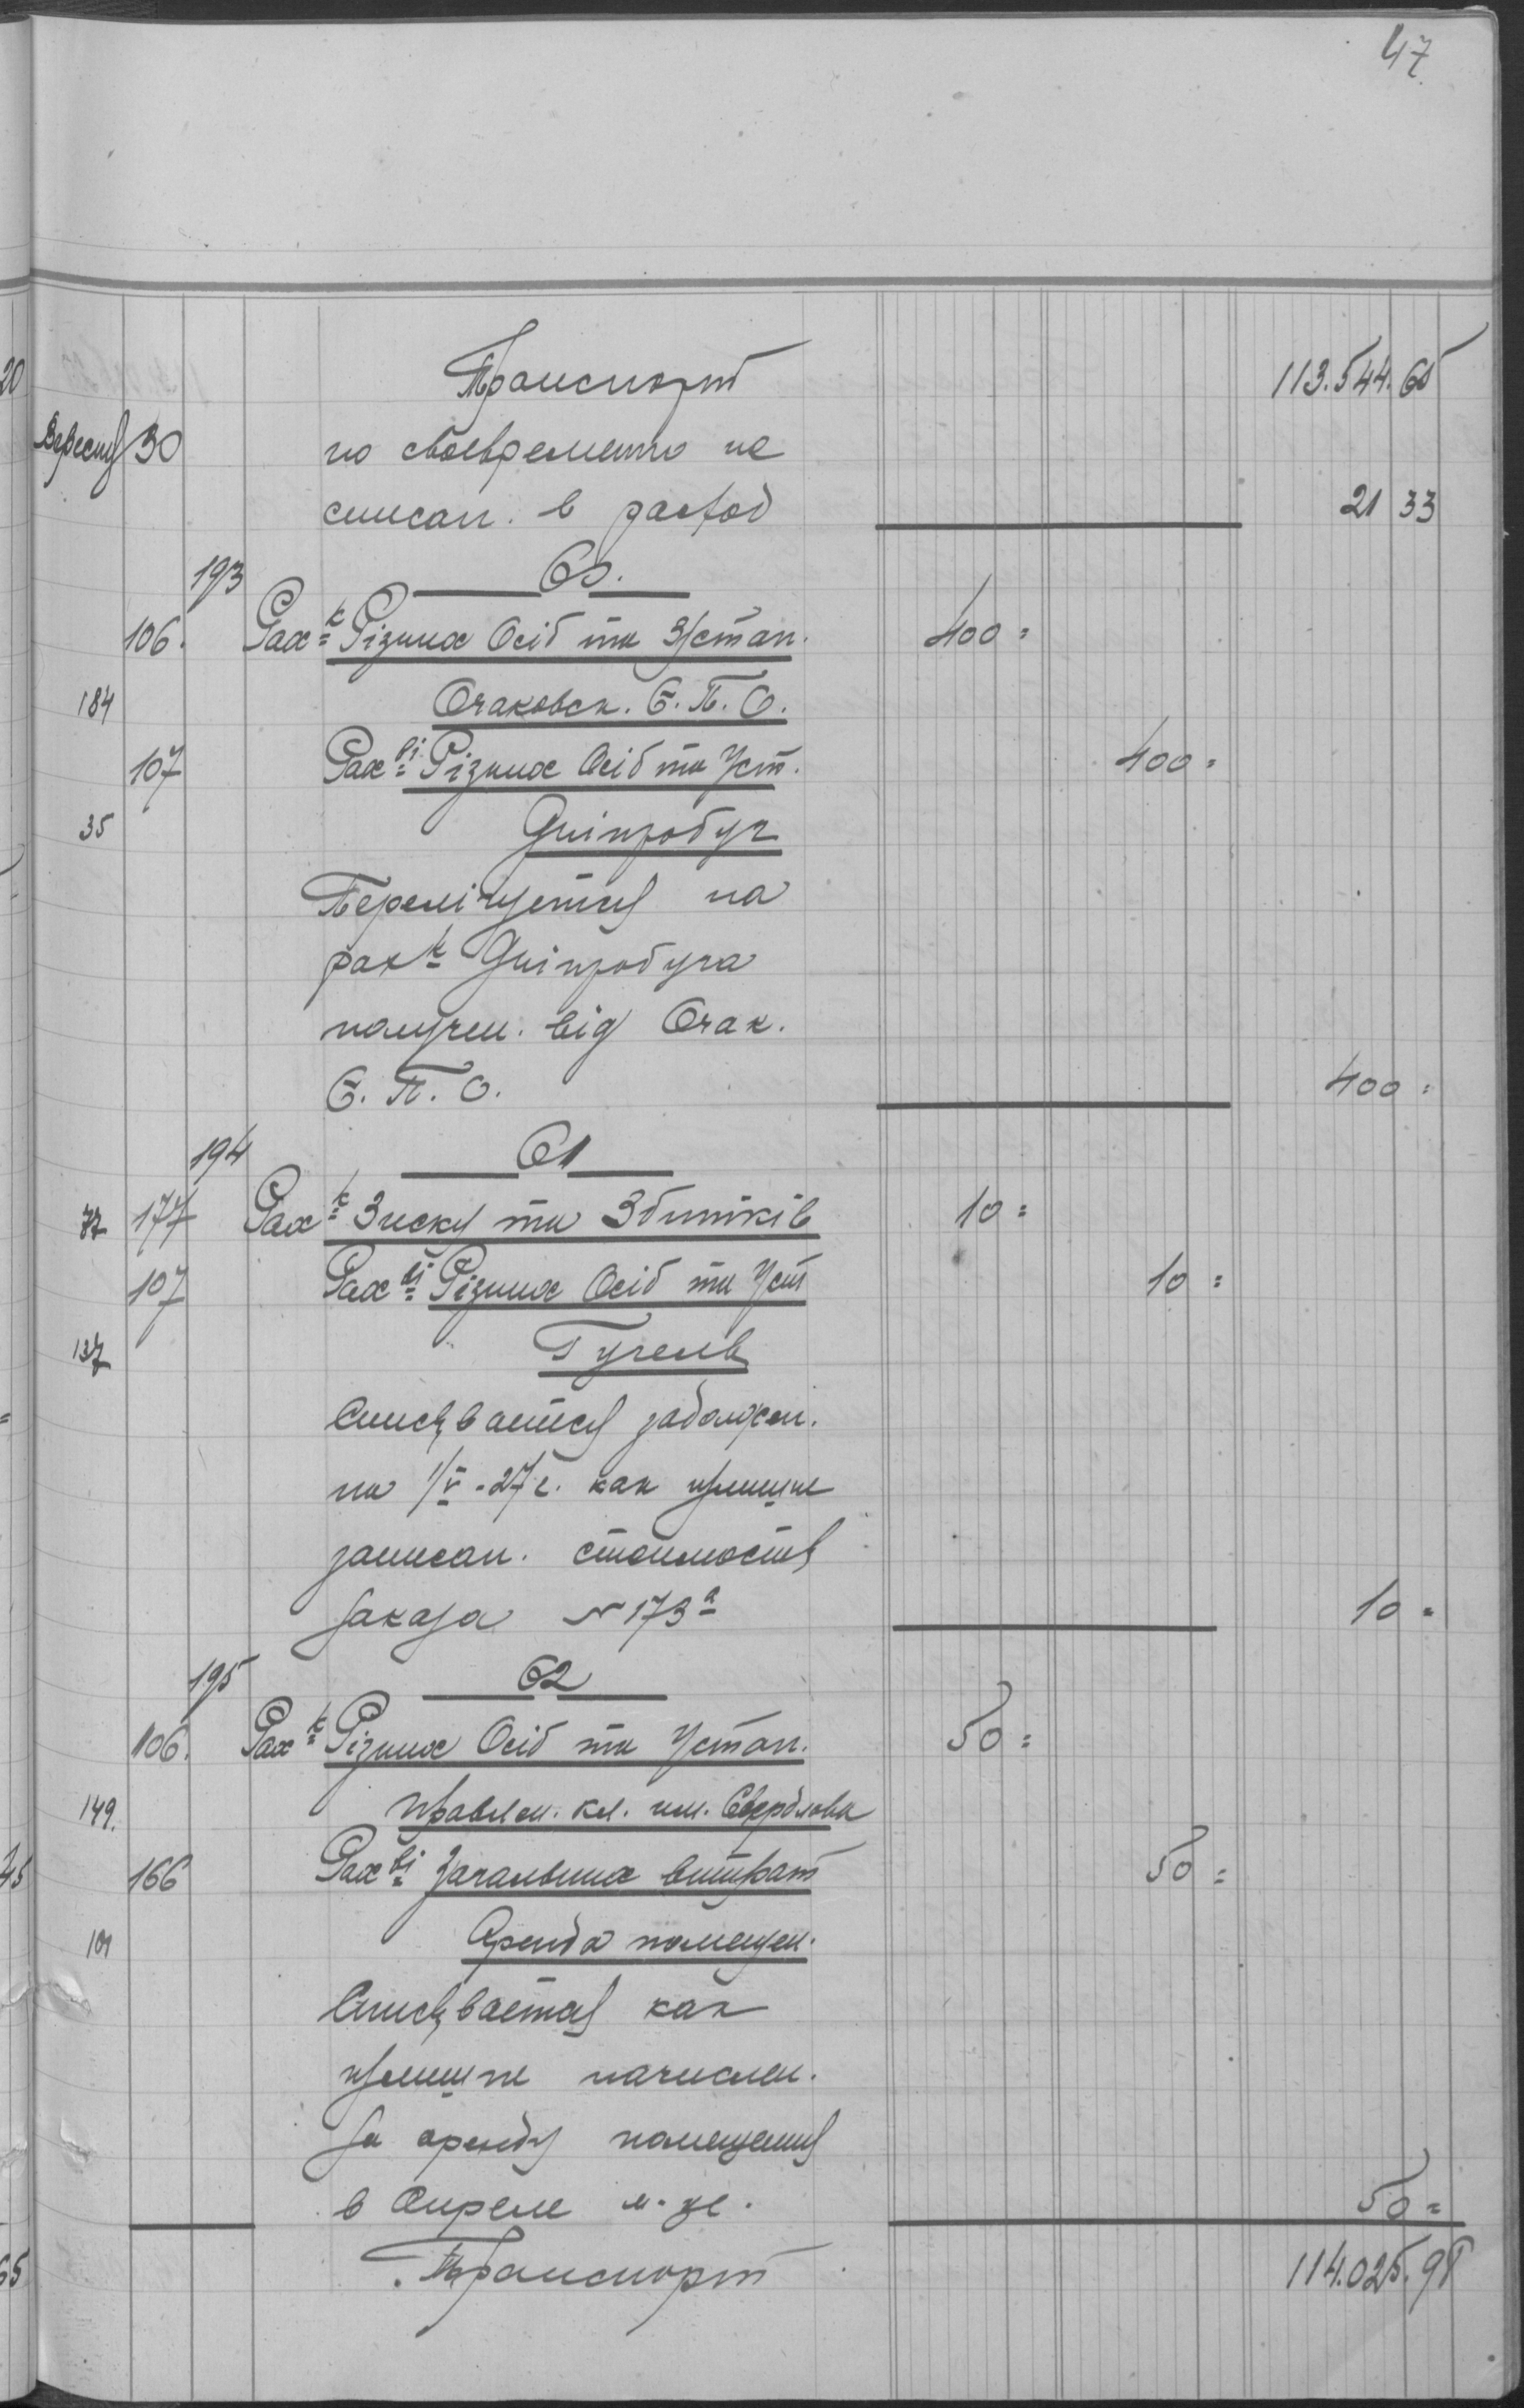 47
Транспорт 113.544.65
Вересня 30 но своевременно не
списан. в расход 21 33
193 60.
106. Рах-к Різних Осіб та Устан. 400=
184 Очаковск. Є.П.О.
107 Рах-ві Різних Осіб та Уст. 400=
35 Дніпробуг
Перелічується на
рах-к Дніпробуга
получен. від Очак.
Є.П.О. 400=
194 61
72 177 Рах-к Зиску та Збитків 10=
107 Рах-ві Різних Осіб та Уст 10=
137
Списывается задолжен.
на 1/V-27 г. как излишне
записан. стоимость
заказа № 173а 10=
195 62
106. Рах-к Різних Осіб та Устан. 50=
149. Правлен. кл. им. Свердлова
166 Рах-ві Загальних витрат 50=
101 Аренда помещен.
Списывается как
излишне начислен.
за аренду помещения
в Апреле м-це. 50=
Транспорт 114.025.98
20
45
65